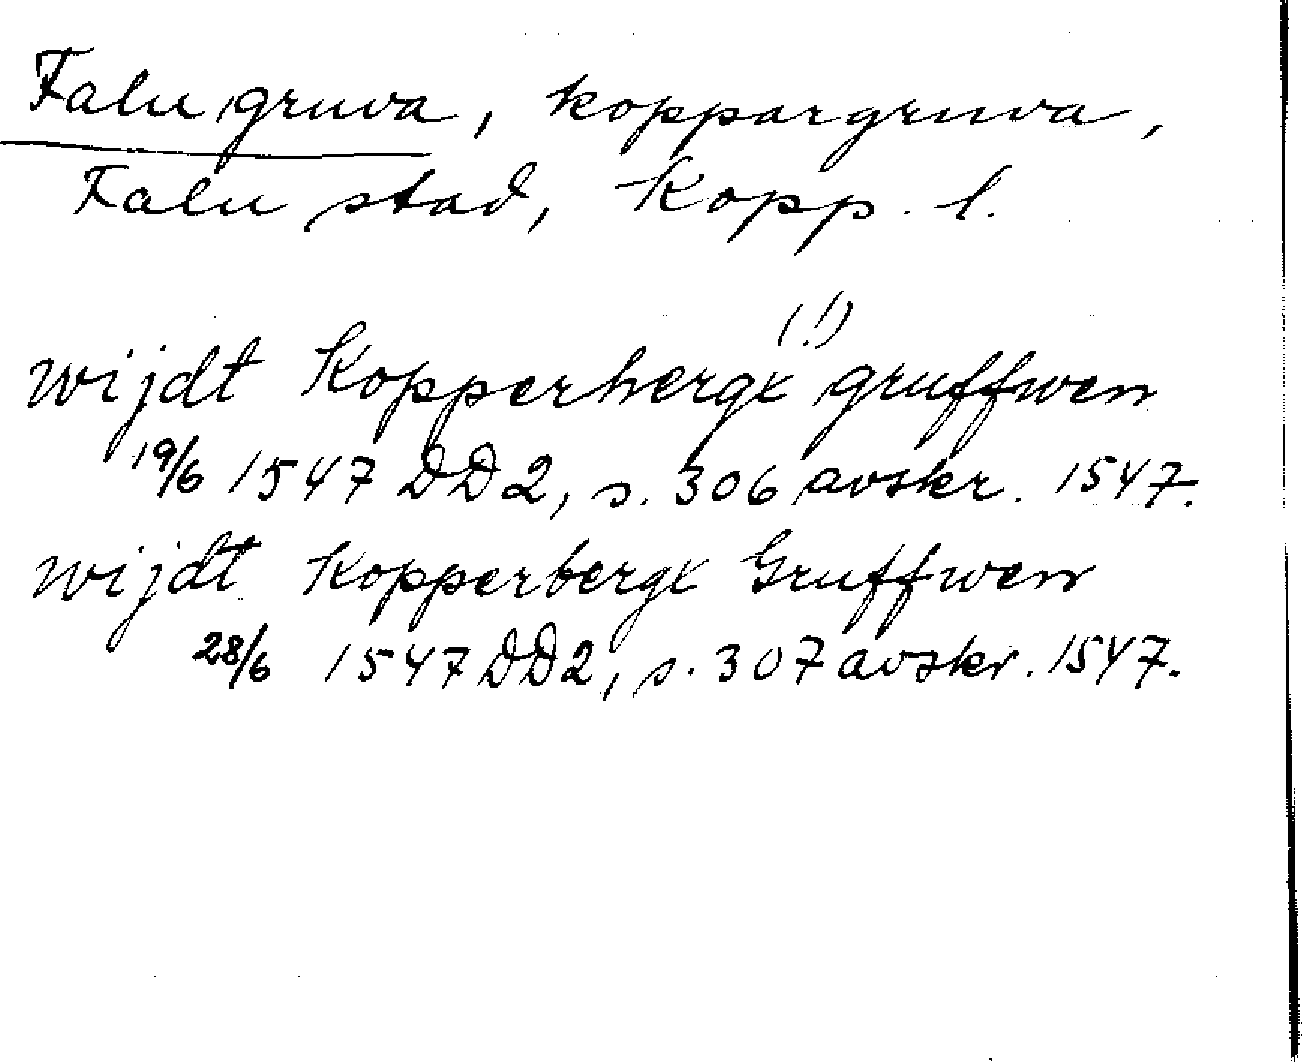 Falu gruva, koppargruva,
Falu stad, Kopp. l.
(!)
wijdt Kopperhergx gruffwen
19/6 1547 DD2, s. 306 avskr. 1547.
wijdt Kopperbergx Gruffwen
28/6 1547 DD2, s. 307 avskr. 1547.